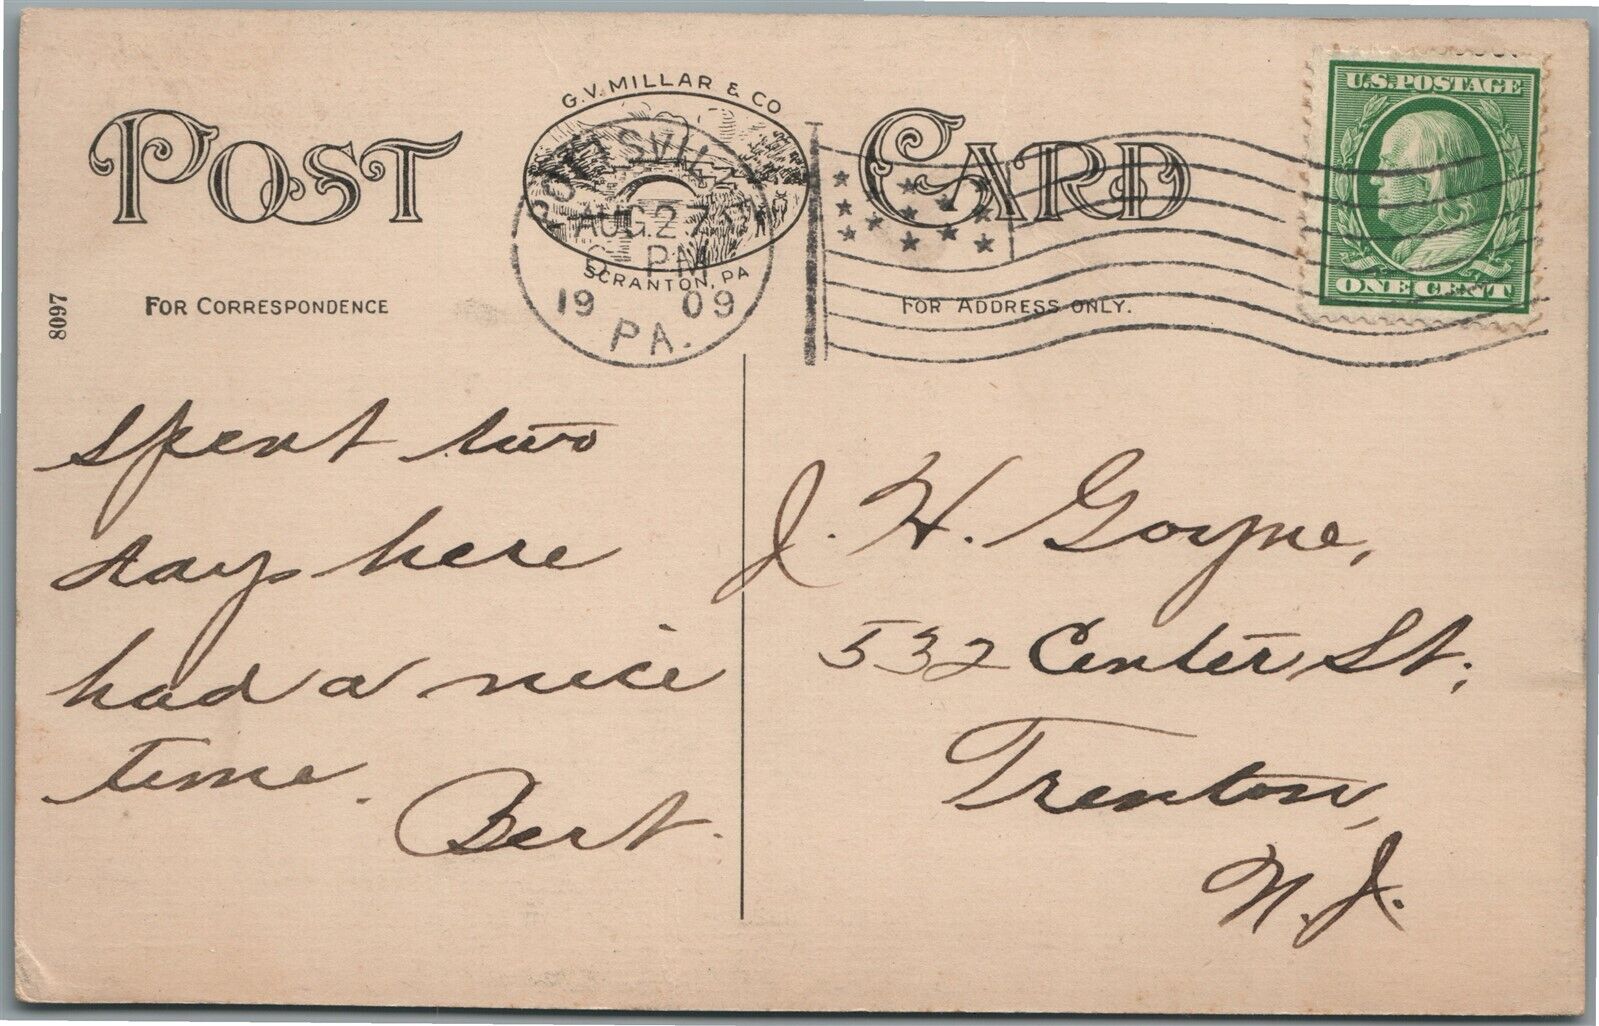 POST CARD
G.V. MILLAR & CO
SCRANTON, PA
POTTSVILLE
AUG 27
PM
19 09
PA.
U.S. POSTAGE
ONE CENT
8097
FOR CORRESPONDENCE
FOR ADDRESS ONLY.
spent two
days here
had a nice
time.
Bert.
J. H. Goyne,
532 Center St.
Trenton,
N. J.